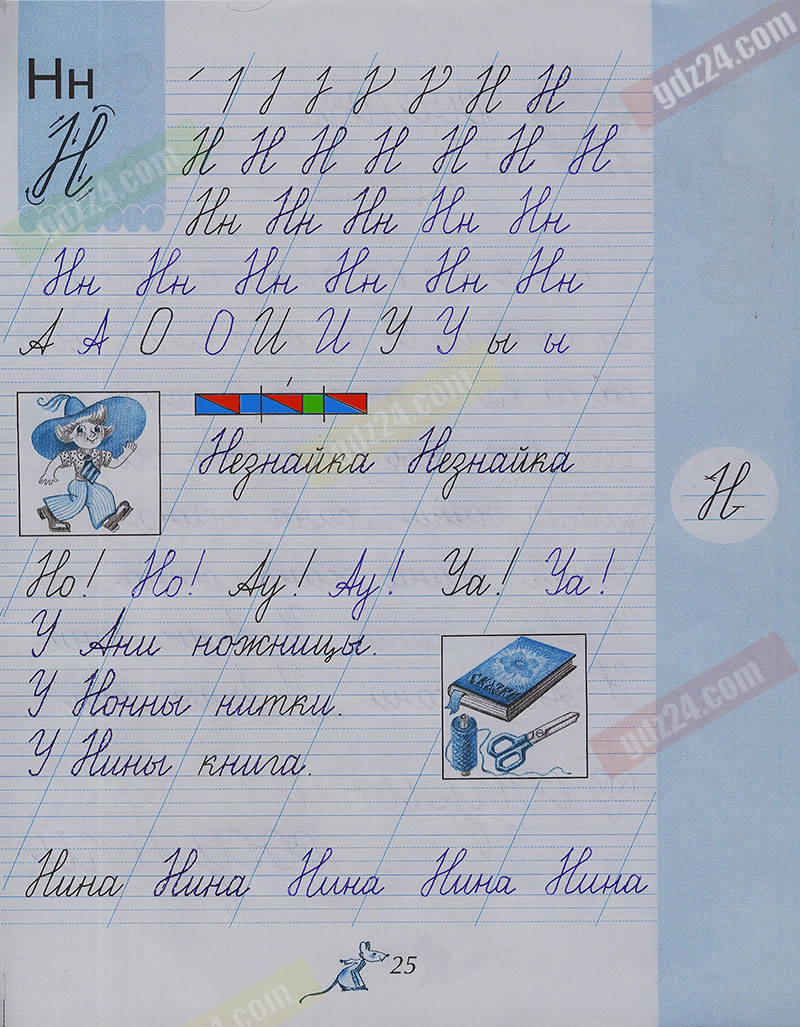 Нн
Н
Н Н
Н Н Н Н Н Н Н
Нн Нн Нн Нн Нн
Нн Нн Нн Нн Нн Нн
А А О О И И У У ы ы
Незнайка Незнайка
Н
Но! Но! Ау! Ау! Уа! Уа!
У Ани ножницы.
У Нонны нитки.
У Нины книга.
СКАЗКИ
Нина Нина Нина Нина Нина
25
gdz24.com
gdz24.com
gdz24.com
gdz24.com
gdz24.com